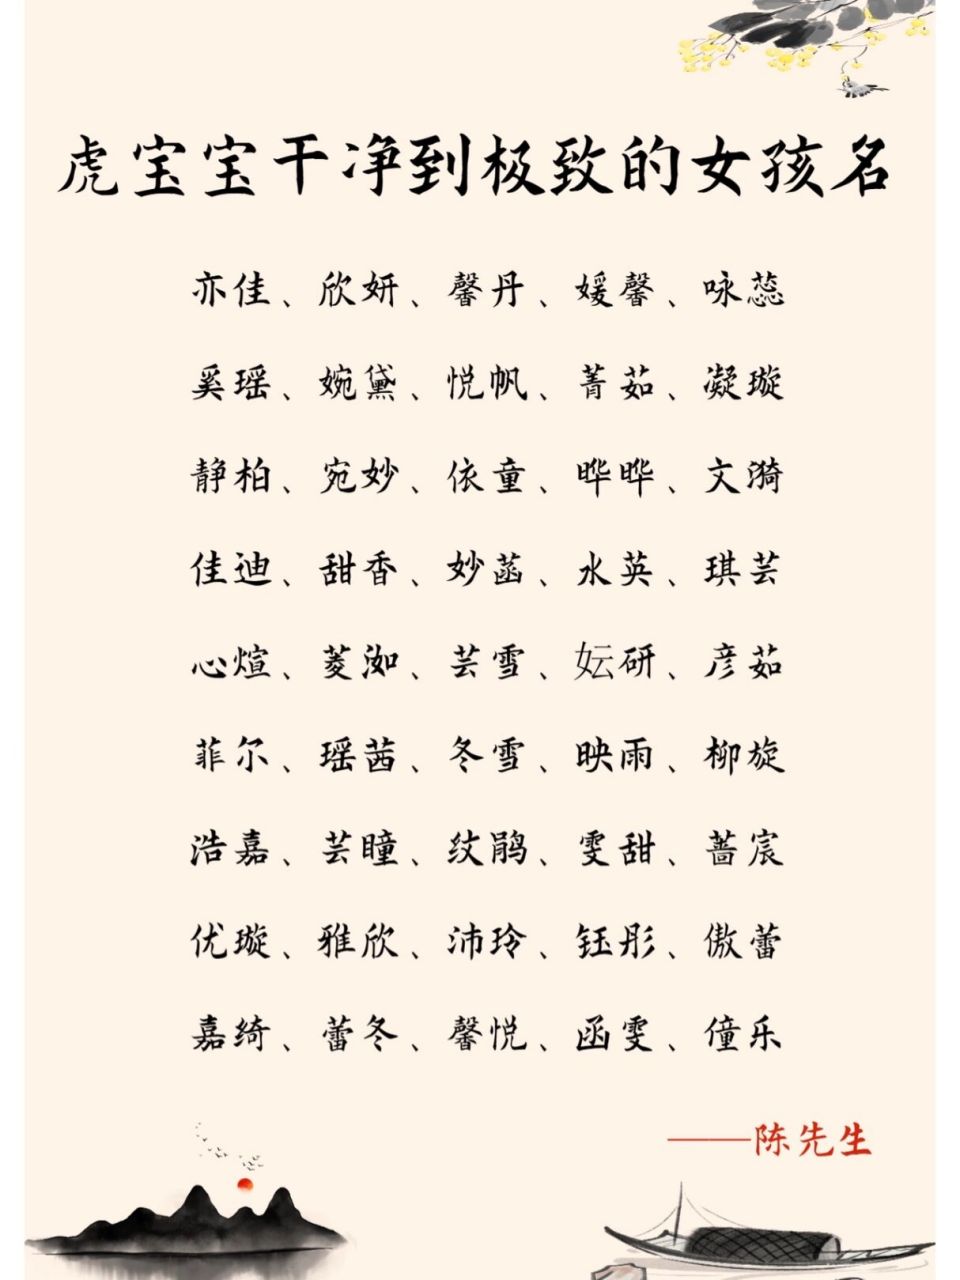 虎宝宝干净到极致的女孩名
亦佳、欣妍、馨丹、媛馨、咏蕊
奚瑶、婉黛、悦帆、菁茹、凝璇
静柏、宛妙、依童、晔晔、文漪
佳迪、甜香、妙菡、水英、琪芸
心煊、菱洳、芸雪、妘研、彦茹
菲尔、瑶茜、冬雪、映雨、柳旋
浩嘉、芸瞳、纹鹃、雯甜、蔷宸
优璇、雅欣、沛玲、钰彤、傲蕾
嘉绮、蕾冬、馨悦、函雯、僮乐
——陈先生